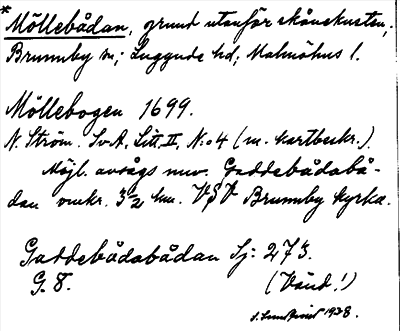 * Möllebådan, grund utanför skånekusten,
Brunnby sn; Luggude hd; Malmöhus l.
Möllebogen 1699.
N. Ström. Sv.A, Litt. II, N:o 4 (m. kartbeskr.).
Möjl. avsågs nuv. Gaddebådabå-
dan omkr. 3 1/2 km. VSV Brunnby kyrka.
Gaddebådabådan Sj: 273.
G. 8. (Vänd!)
1928.